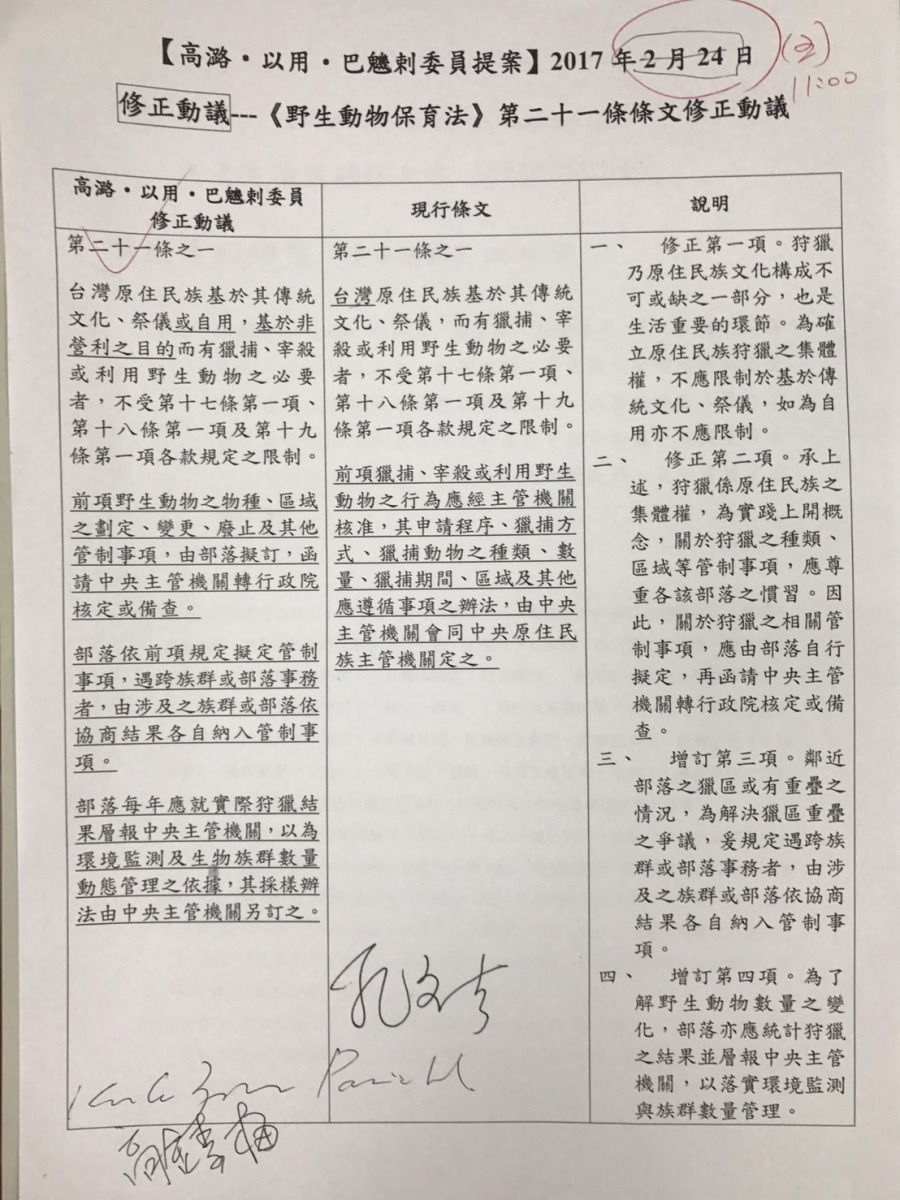 【高潞·以用·巴魕剌委員提案】2017 年 2 月 24 日
(2)
11:00
修正動議---《野生動物保育法》第二十一條條文修正動議
高潞·以用·巴魕剌委員
修正動議
第二十一條之一
台灣原住民族基於其傳統
文化、祭儀或自用，基於非
營利之目的而有獵捕、宰殺
或利用野生動物之必要
者，不受第十七條第一項、
第十八條第一項及第十九
條第一項各款規定之限制。
前項野生動物之物種、區域
之劃定、變更、廢止及其他
管制事項，由部落擬訂，函
請中央主管機關轉行政院
核定或備查。
部落依前項規定擬定管制
事項，遇跨族群或部落事務
者，由涉及之族群或部落依
協商結果各自納入管制事
項。
部落每年應就實際狩獵結
果層報中央主管機關，以為
環境監測及生物族群數量
動態管理之依據，其採樣辦
法由中央主管機關另訂之。
現行條文
第二十一條之一
台灣原住民族基於其傳統
文化、祭儀，而有獵捕、宰
殺或利用野生動物之必要
者，不受第十七條第一項、
第十八條第一項及第十九
條第一項各款規定之限制。
前項獵捕、宰殺或利用野生
動物之行為應經主管機關
核准，其申請程序、獵捕方
式、獵捕動物之種類、數
量、獵捕期間、區域及其他
應遵循事項之辦法，由中央
主管機關會同中央原住民
族主管機關定之。
說明
一、 修正第一項。狩獵
乃原住民族文化構成不
可或缺之一部分，也是
生活重要的環節。為確
立原住民族狩獵之集體
權，不應限制於基於傳
統文化、祭儀，如為自
用亦不應限制。
二、 修正第二項。承上
述，狩獵係原住民族之
集體權，為實踐上開概
念，關於狩獵之種類、
區域等管制事項，應尊
重各該部落之慣習。因
此，關於狩獵之相關管
制事項，應由部落自行
擬定，再函請中央主管
機關轉行政院核定或備
查。
三、 增訂第三項。鄰近
部落之獵區或有重疊之
情況，為解決獵區重疊
之爭議，爰規定遇跨族
群或部落事務者，由涉
及之族群或部落依協商
結果各自納入管制事
項。
四、 增訂第四項。為了
解野生動物數量之變
化，部落亦應統計狩獵
之結果並層報中央主管
機關，以落實環境監測
與族群數量管理。
孔文吉